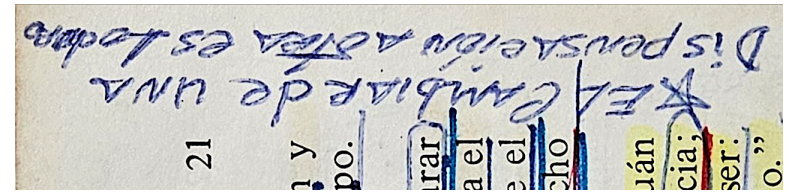 EL CAMBIAR de UNA
DispENSACIÓN A OTRA es
21
n y
po.
rar
a el
e el
cho
uán
cia;
ser:
o.”